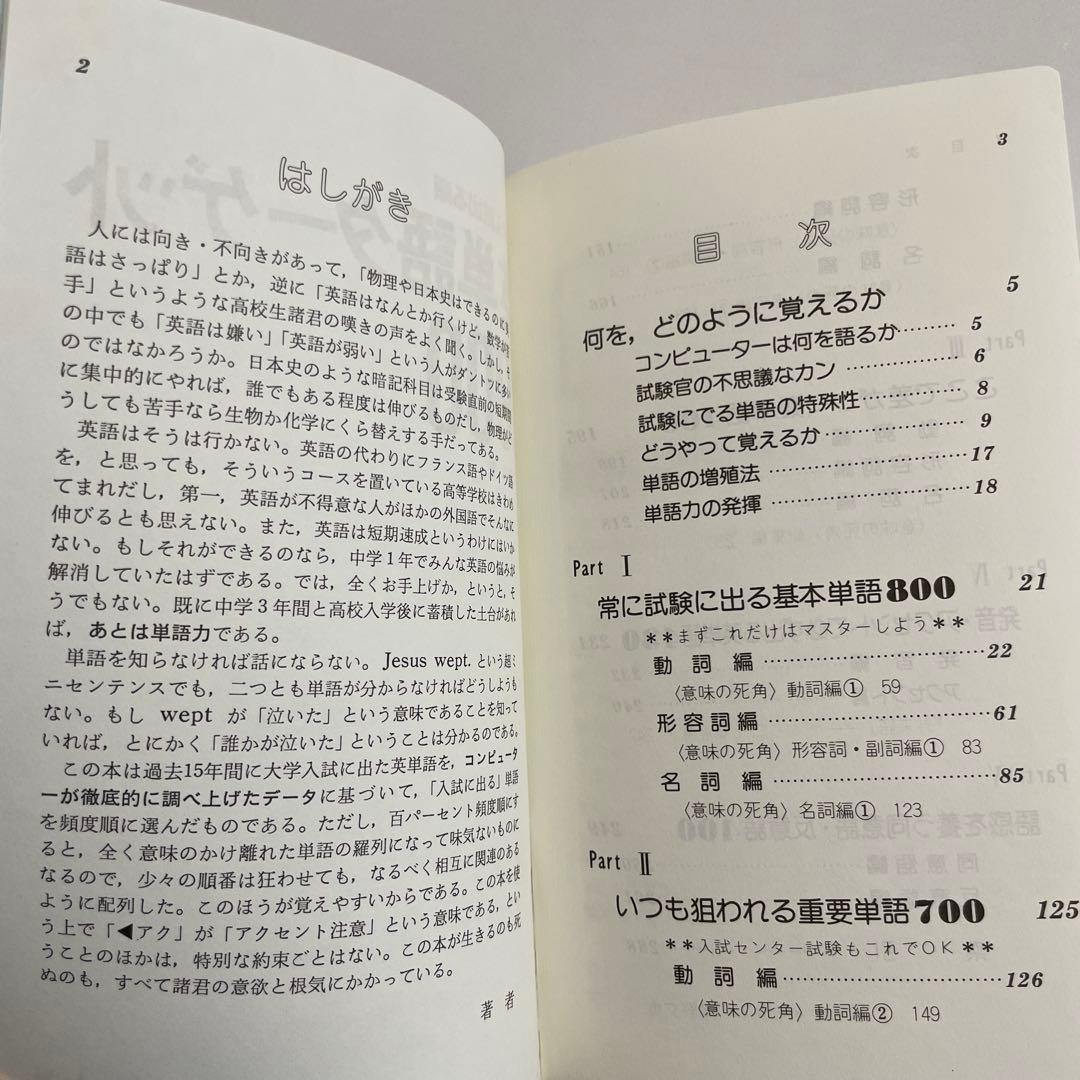 2
はしがき
人には向き・不向きがあって，「物理や日本史はできるのに英
語はさっぱり」とか，逆に「英語はなんとか行くけど，数学が苦
手」というような高校生諸君の嘆きの声をよく聞く。しかし，そ
の中でも「英語は嫌い」「英語が弱い」という人がダントツに多い
のではなかろうか。日本史のような暗記科目は受験直前の短期間
に集中的にやれば，誰でもある程度は伸びるものだし，物理がど
うしても苦手なら生物か化学にくら替えする手だってある。
英語はそうは行かない。英語の代わりにフランス語やドイツ語
を，と思っても，そういうコースを置いている高等学校はきわめ
てまれだし，第一，英語が不得意な人がほかの外国語でそんなに
伸びるとも思えない。また，英語は短期速成というわけにはいか
ない。もしそれができるのなら，中学1年でみんな英語の悩みが
解消していたはずである。では，全くお手上げか，というと，そ
うでもない。既に中学3年間と高校入学後に蓄積した土台があれ
ば，あとは単語力である。
単語を知らなければ話にならない。Jesus wept. という超ミ
ニセンテンスでも，二つとも単語が分からなければどうしようも
ない。もし wept が「泣いた」という意味であることを知って
いれば，とにかく「誰かが泣いた」ということは分かるのである。
この本は過去15年間に大学入試に出た英単語を，コンピュータ
ーが徹底的に調べ上げたデータに基づいて，「入試に出る」単語
を頻度順に選んだものである。ただし，百パーセント頻度順にす
ると，全く意味のかけ離れた単語の羅列になって味気ないものに
なるので，少々の順番は狂わせても，なるべく相互に関連のある
ように配列した。このほうが覚えやすいからである。この本を使
う上で「◀アク」が「アクセント注意」という意味である，とい
うことのほかは，特別な約束ごとはない。この本が生きるのも死
ぬのも，すべて諸君の意欲と根気にかかっている。
著者
目次 3
目次
何を，どのように覚えるか 5
コンピューターは何を語るか………5
試験官の不思議なカン…………6
試験にでる単語の特殊性…………8
どうやって覚えるか…………9
単語の増殖法…………17
単語力の発揮…………18
Part Ⅰ
常に試験に出る基本単語800 21
＊＊まずこれだけはマスターしよう＊＊
動詞編…………22
〈意味の死角〉動詞編① 59
形容詞編…………61
〈意味の死角〉形容詞・副詞編① 83
名詞編…………85
〈意味の死角〉名詞編① 123
Part Ⅱ
いつも狙われる重要単語700 125
＊＊入試センター試験もこれでOK＊＊
動詞編…………126
〈意味の死角〉動詞編② 149